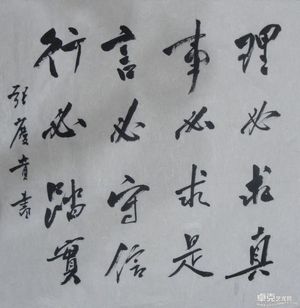 理必求真
事必求是
言必守信
行必踏實
卓克艺术网